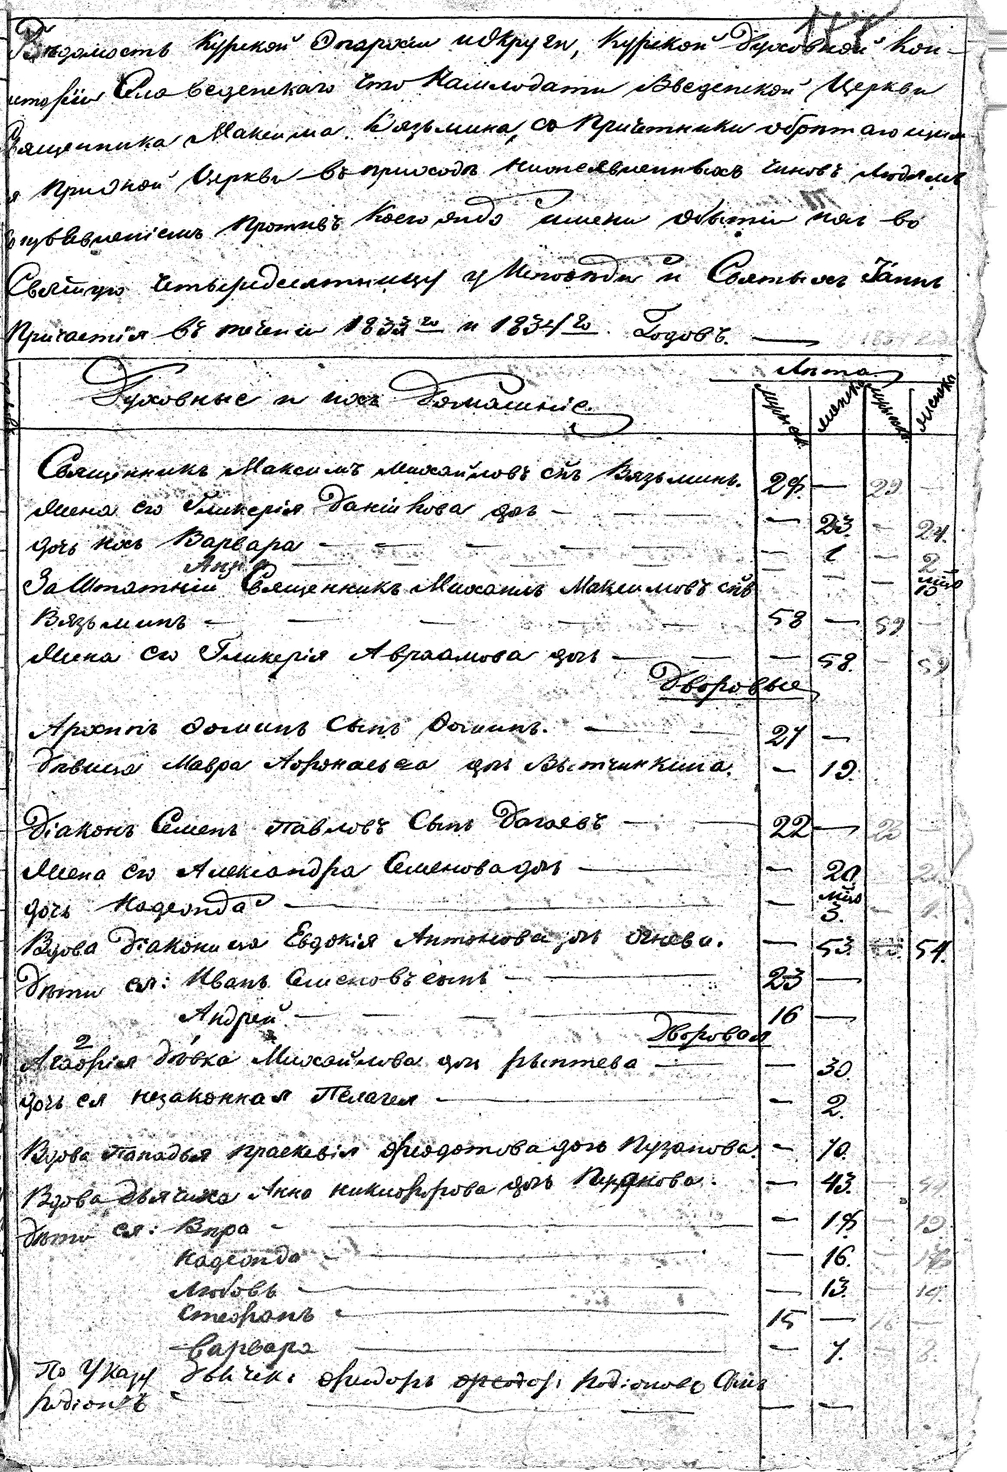 Ведомость Курской Епархіи и Округи, Курской Духовной Кон-
систоріи Села Веденскаго что на Введенской Церкви
Священника Максима Вязьмина со Причетники обретающими
ся При Оной Церкве въ приходе нижеявленныхъ чиновъ Людямъ
Противъ Коего либо имени бытіи ихъ во
Святую Четыредесятницу у Исповеди и Святыхъ Таинъ
Причастія въ теченіи 1833го и 1834го Годовъ.
Лета
Духовные и ихъ Домашніе
мужска женска мужска женска
Священникъ Максимъ Михайловъ сынъ Вязьминъ. 28 — 29 —
Жена его Гликерія Даніилова дочь — 23. — 24.
Дочь ихъ Варвара — 1 — 2
Анна
Заштатній Священникъ Михаилъ Максимовъ сынъ
Вязьминъ 58 — 59 —
Жена его Гликерія Авраамова дочь — 58. — 59
Дворовые
Архипъ сынъ 27 —
Девица Мавра дочь — 19.
Діаконъ Семенъ Павловъ Сынъ 22 — 23 —
Жена его Александра Семенова дочь — 20
дочь Надежда — 3. —
Вдова Діаконица Евдокія Антонова дочь — 53. 54.
Дети ея: Иванъ Семеновъ сынъ 23 —
Андрей 16 —
Дворовая
девка Михайлова дочь — 30.
дочь ея незаконная Пелагея — 2.
Вдова Попадья Праскевія Феодотова дочь Пузанова. — 70.
Вдова дьячиха Анна Никифорова дочь — 43. — 44
Дети ея: Вера — 18 — 19.
Надежда — 16. —
Любовь — 13. — 14.
Стефанъ 15 — 16 —
Варвара — 7. — 8.
По Указу Дьячекъ Феодоръ Родіоновъ Сынъ
Родіоновъ — —